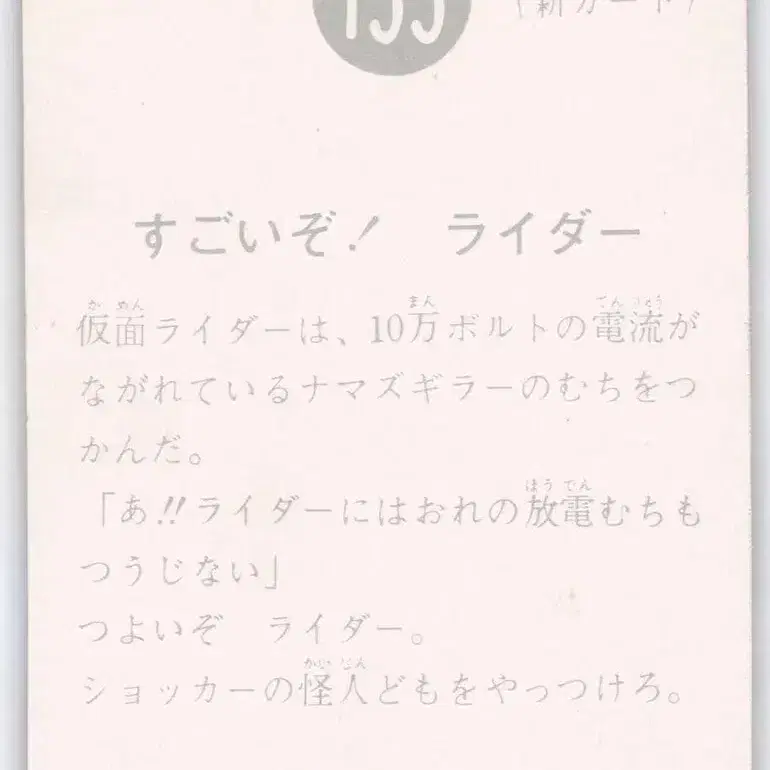 155
(新カード)
すごいぞ! ライダー
仮面ライダーは、10万ボルトの電流が
ながれているナマズギラーのむちをつ
かんだ。
「あ!!ライダーにはおれの放電むちも
つうじない」
つよいぞ ライダー。
ショッカーの怪人どもをやっつけろ。